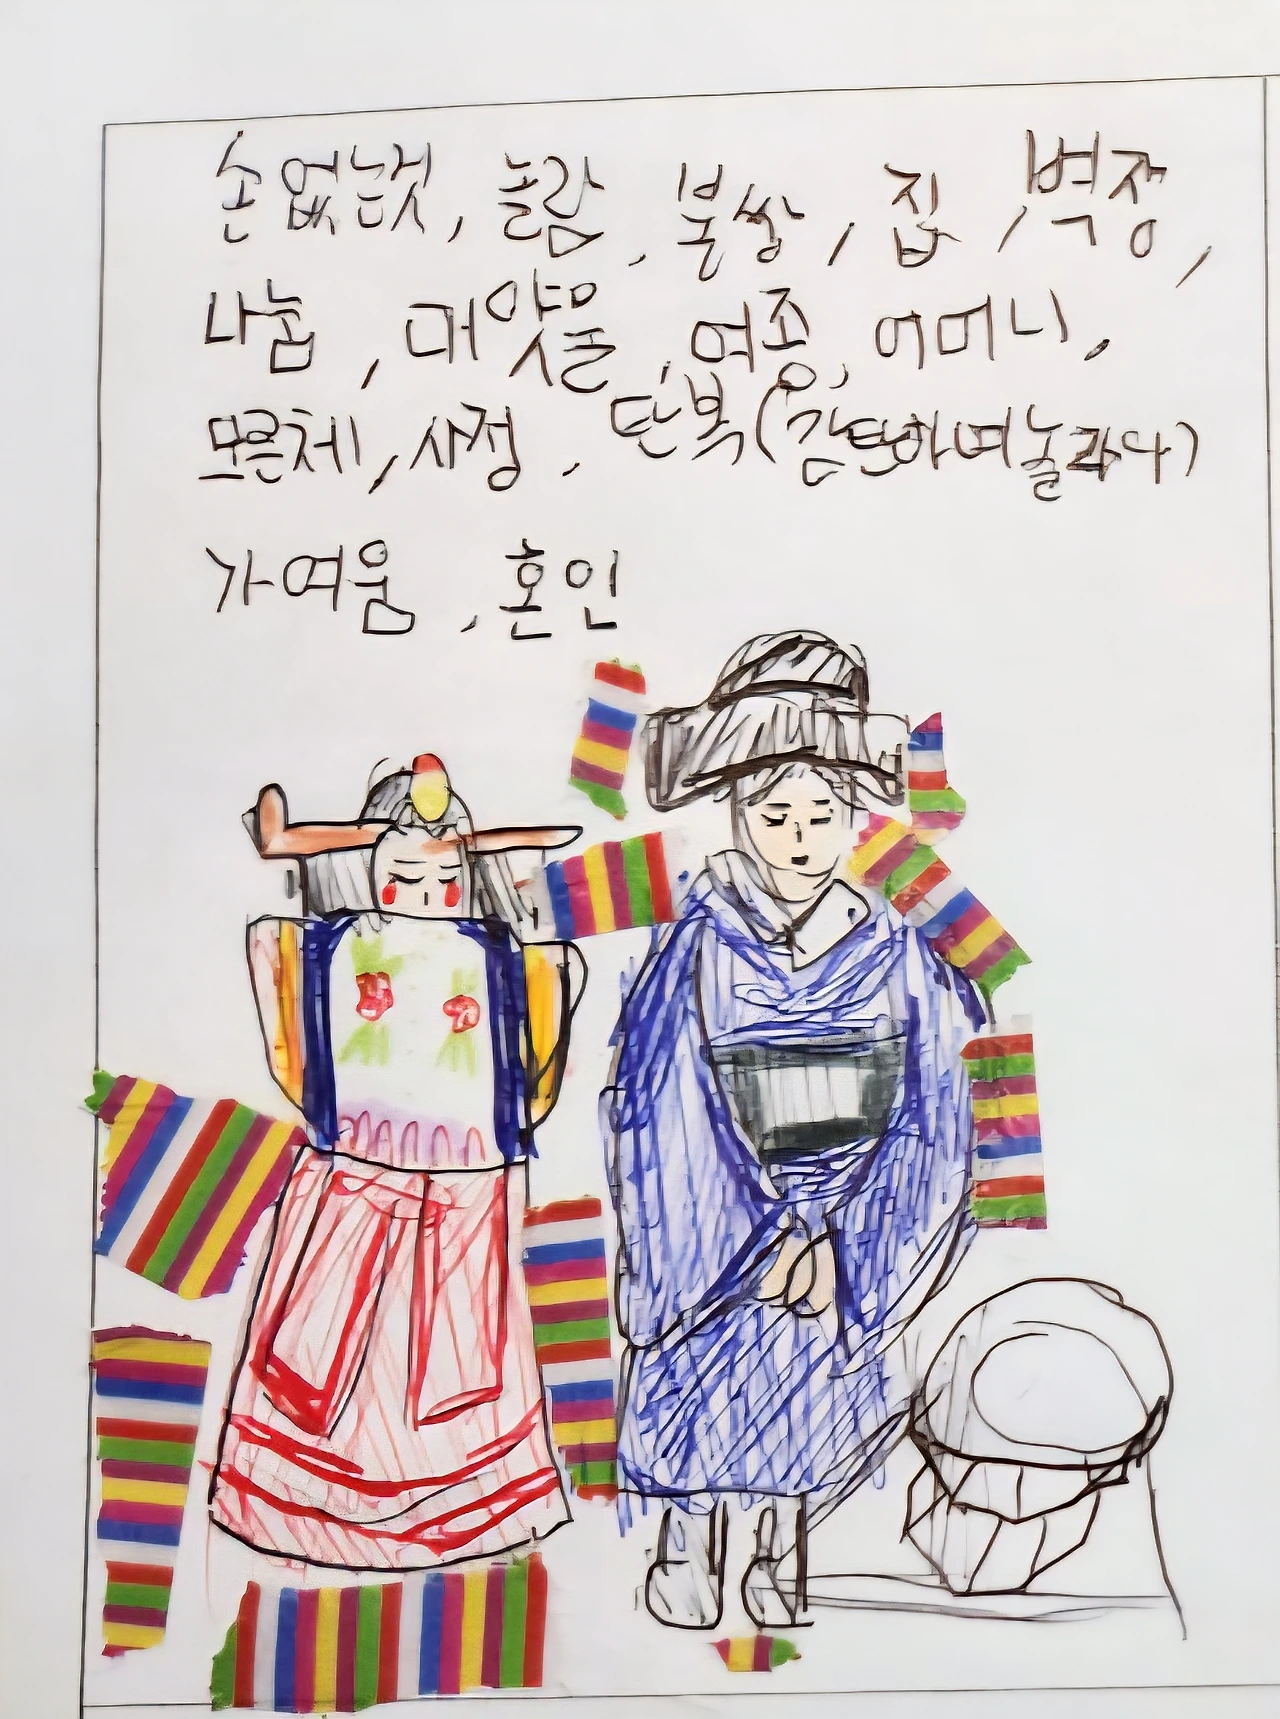 손 없는것, 놀람, 불쌍, 집, 벽장,
나눔, 대얏물, 여종, 어머니,
모른체, 사정, 탄복(감탄하며놀라다)
가여움, 혼인